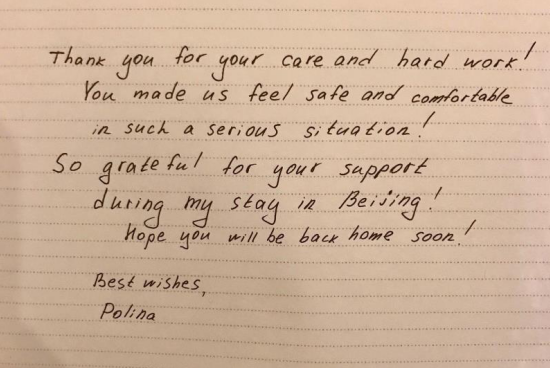 Thank you for your care and hard work!
You made us feel safe and comfortable
in such a serious situation!
So grateful for your support
during my stay in Beijing!
Hope you will be back home soon!
Best wishes,
Polina